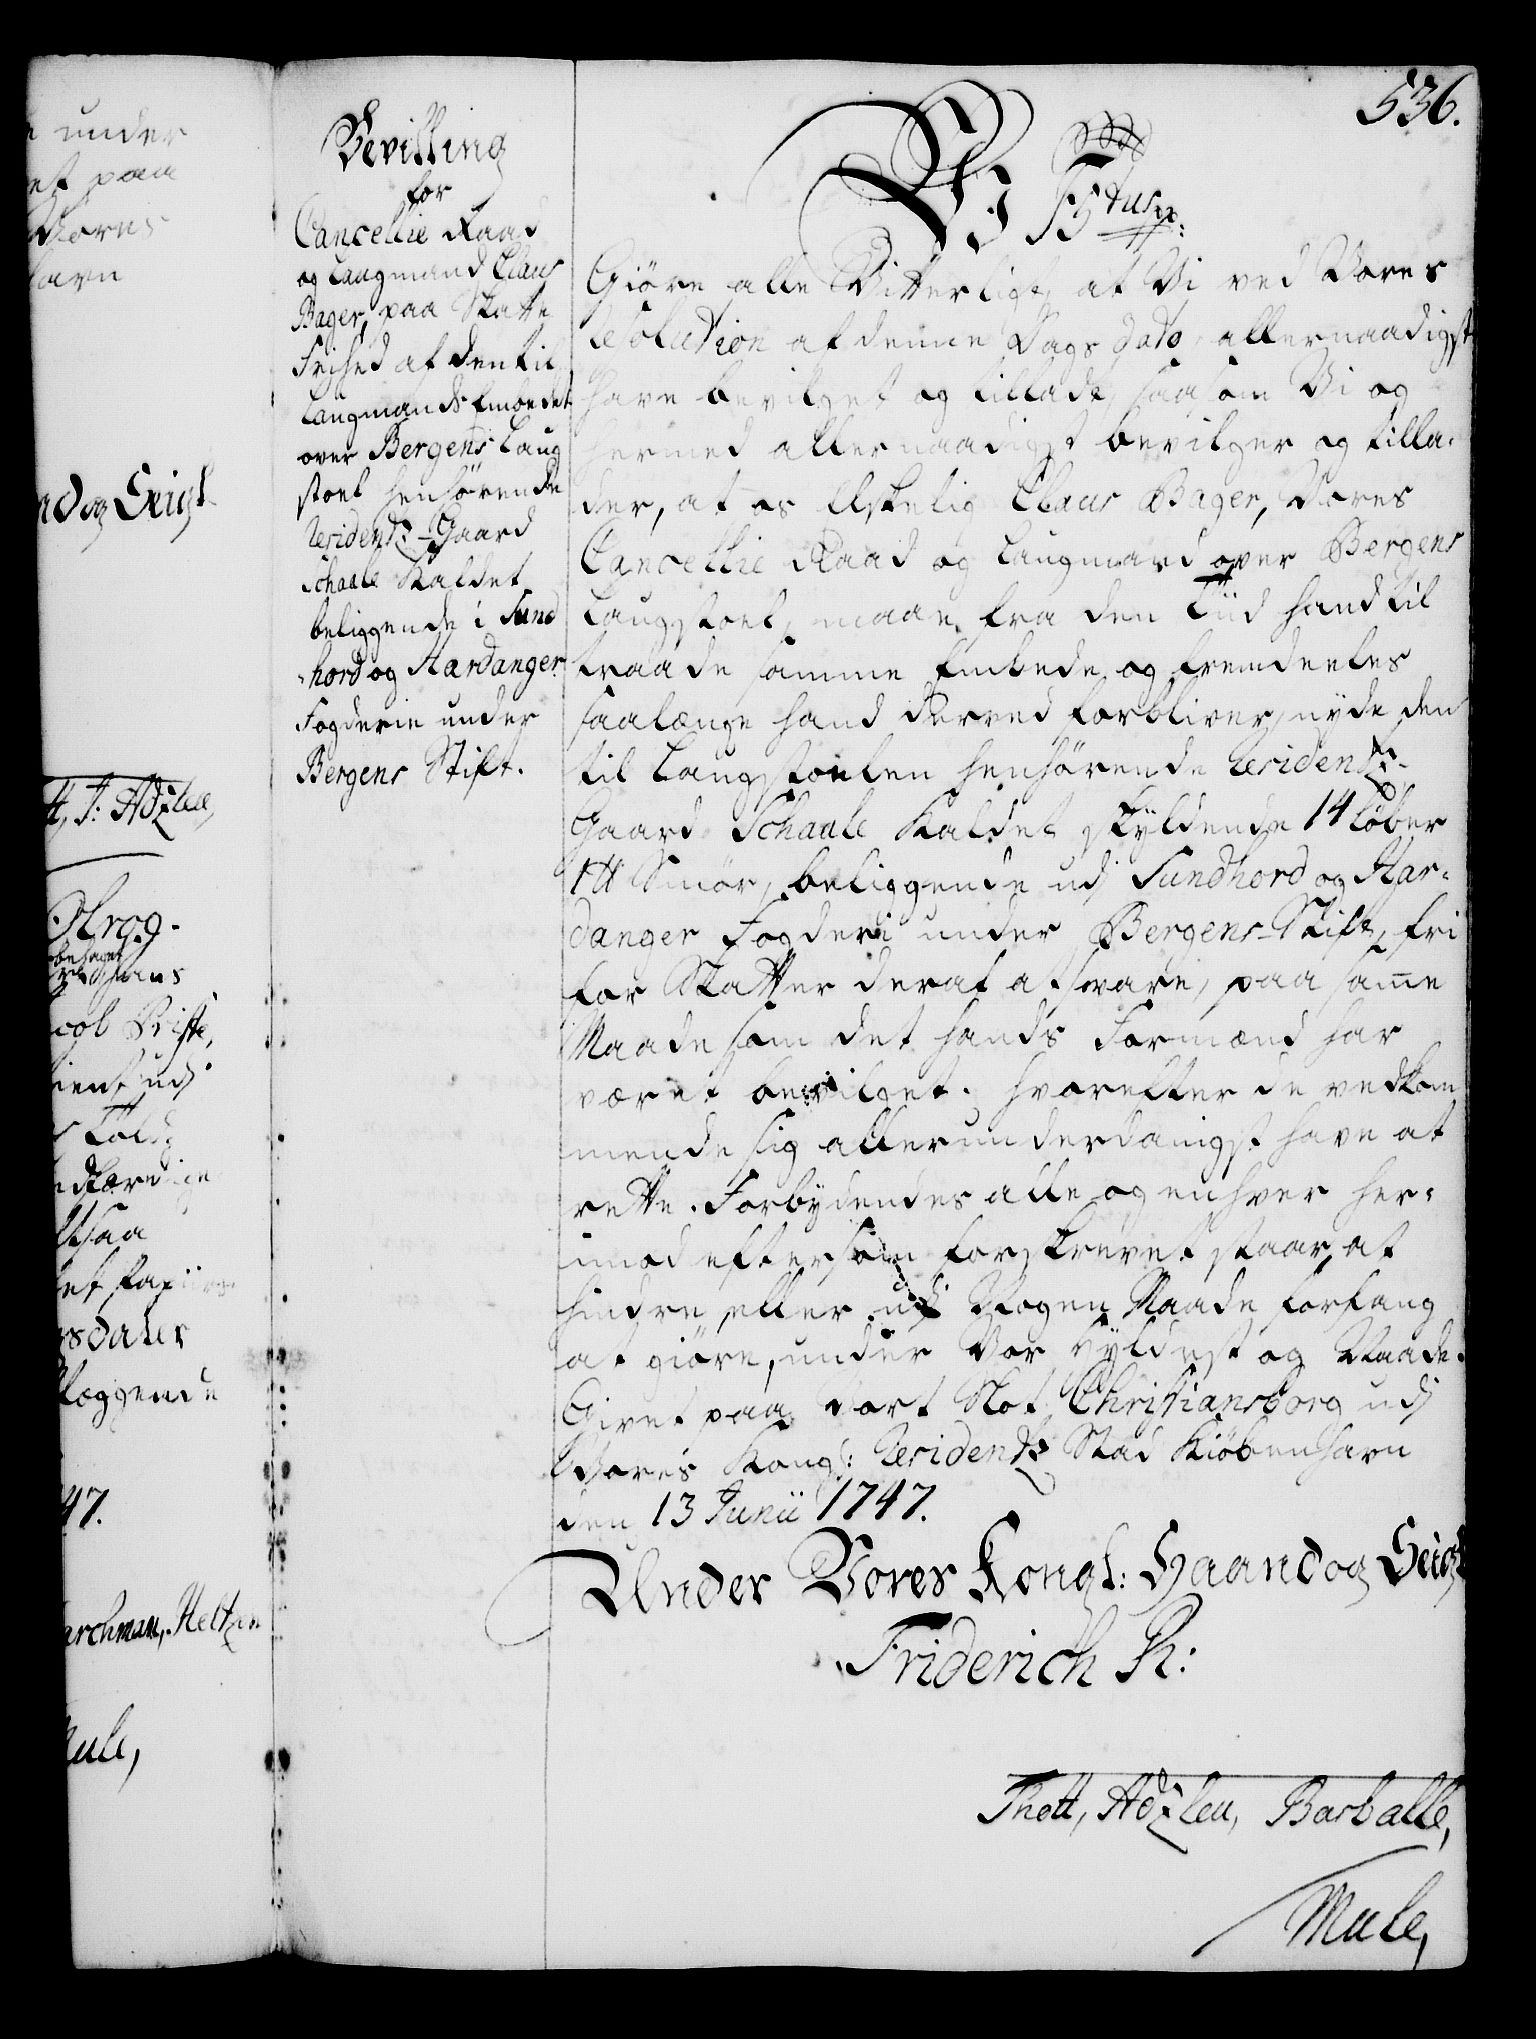 536.
e under
et paa
Vores
havn
nd og Seigl
tt, J: Adzleu,
Ostrog.
behaget
hans
cob Friste,
tient udj
ltsaa
rsdaler
læggende
47.
archman, Heltzen
Mule,
Bevilling
for
Cancellie Raad
og Laugmand Claus
Bager, paa Skatte
Frihed af den til
Laugmands Embedet
over Bergens Laug
stoel henhørende
Residentz-Gaard
Schaale Kaldet
beliggende i Sund
-hord og Hardanger
Fogderie under
Bergens Stift.
Vi F5tus pp:
Giöre alle Vitterligt, at Vi ved Vores
Resolution af denne Dags Dato, allernaadigst
have bevilget og tilladt, saasom Vi og
hermed allernaadigst bevilger og tilla-
der, at os Elskelig Claus Bager, Vores
Cancellie Raad og Laugmand over Bergens
Laugstoel, maae fra den Tiid hand til
traade samme Embede og fremdeeles
saalænge hand derved forbliver, nyde den
til Laugstoelen henhörende Residentz-
Gaard Schaale Kaldet skyldende 14 Löber
1 ℔ Smör, beliggende udj Sundhord og Har-
danger Fogderi under Bergens-Stift, fri
for Skatter deraf at svare, paa same
Maade som det hands Formænd har
været bevilget. Hvorefter de vedkom
mende sig allerunderdanigst have at
rette. Forbydendes alle og enhver her-
imod eftersom forskrevet staar, at
hindre, eller udj Nogen Maade forfang
at giöre, under Vor Hyldest og Naade.
Givet paa vort Slot Christiansborg udj
Vores Kongl: Residentz Stad Kiöbenhavn
den 13 Junii 1747.
Under Vores Kongl: Haand og Seigl
Friderich R:
Thott, Adzleu, Barballe,
Mule,